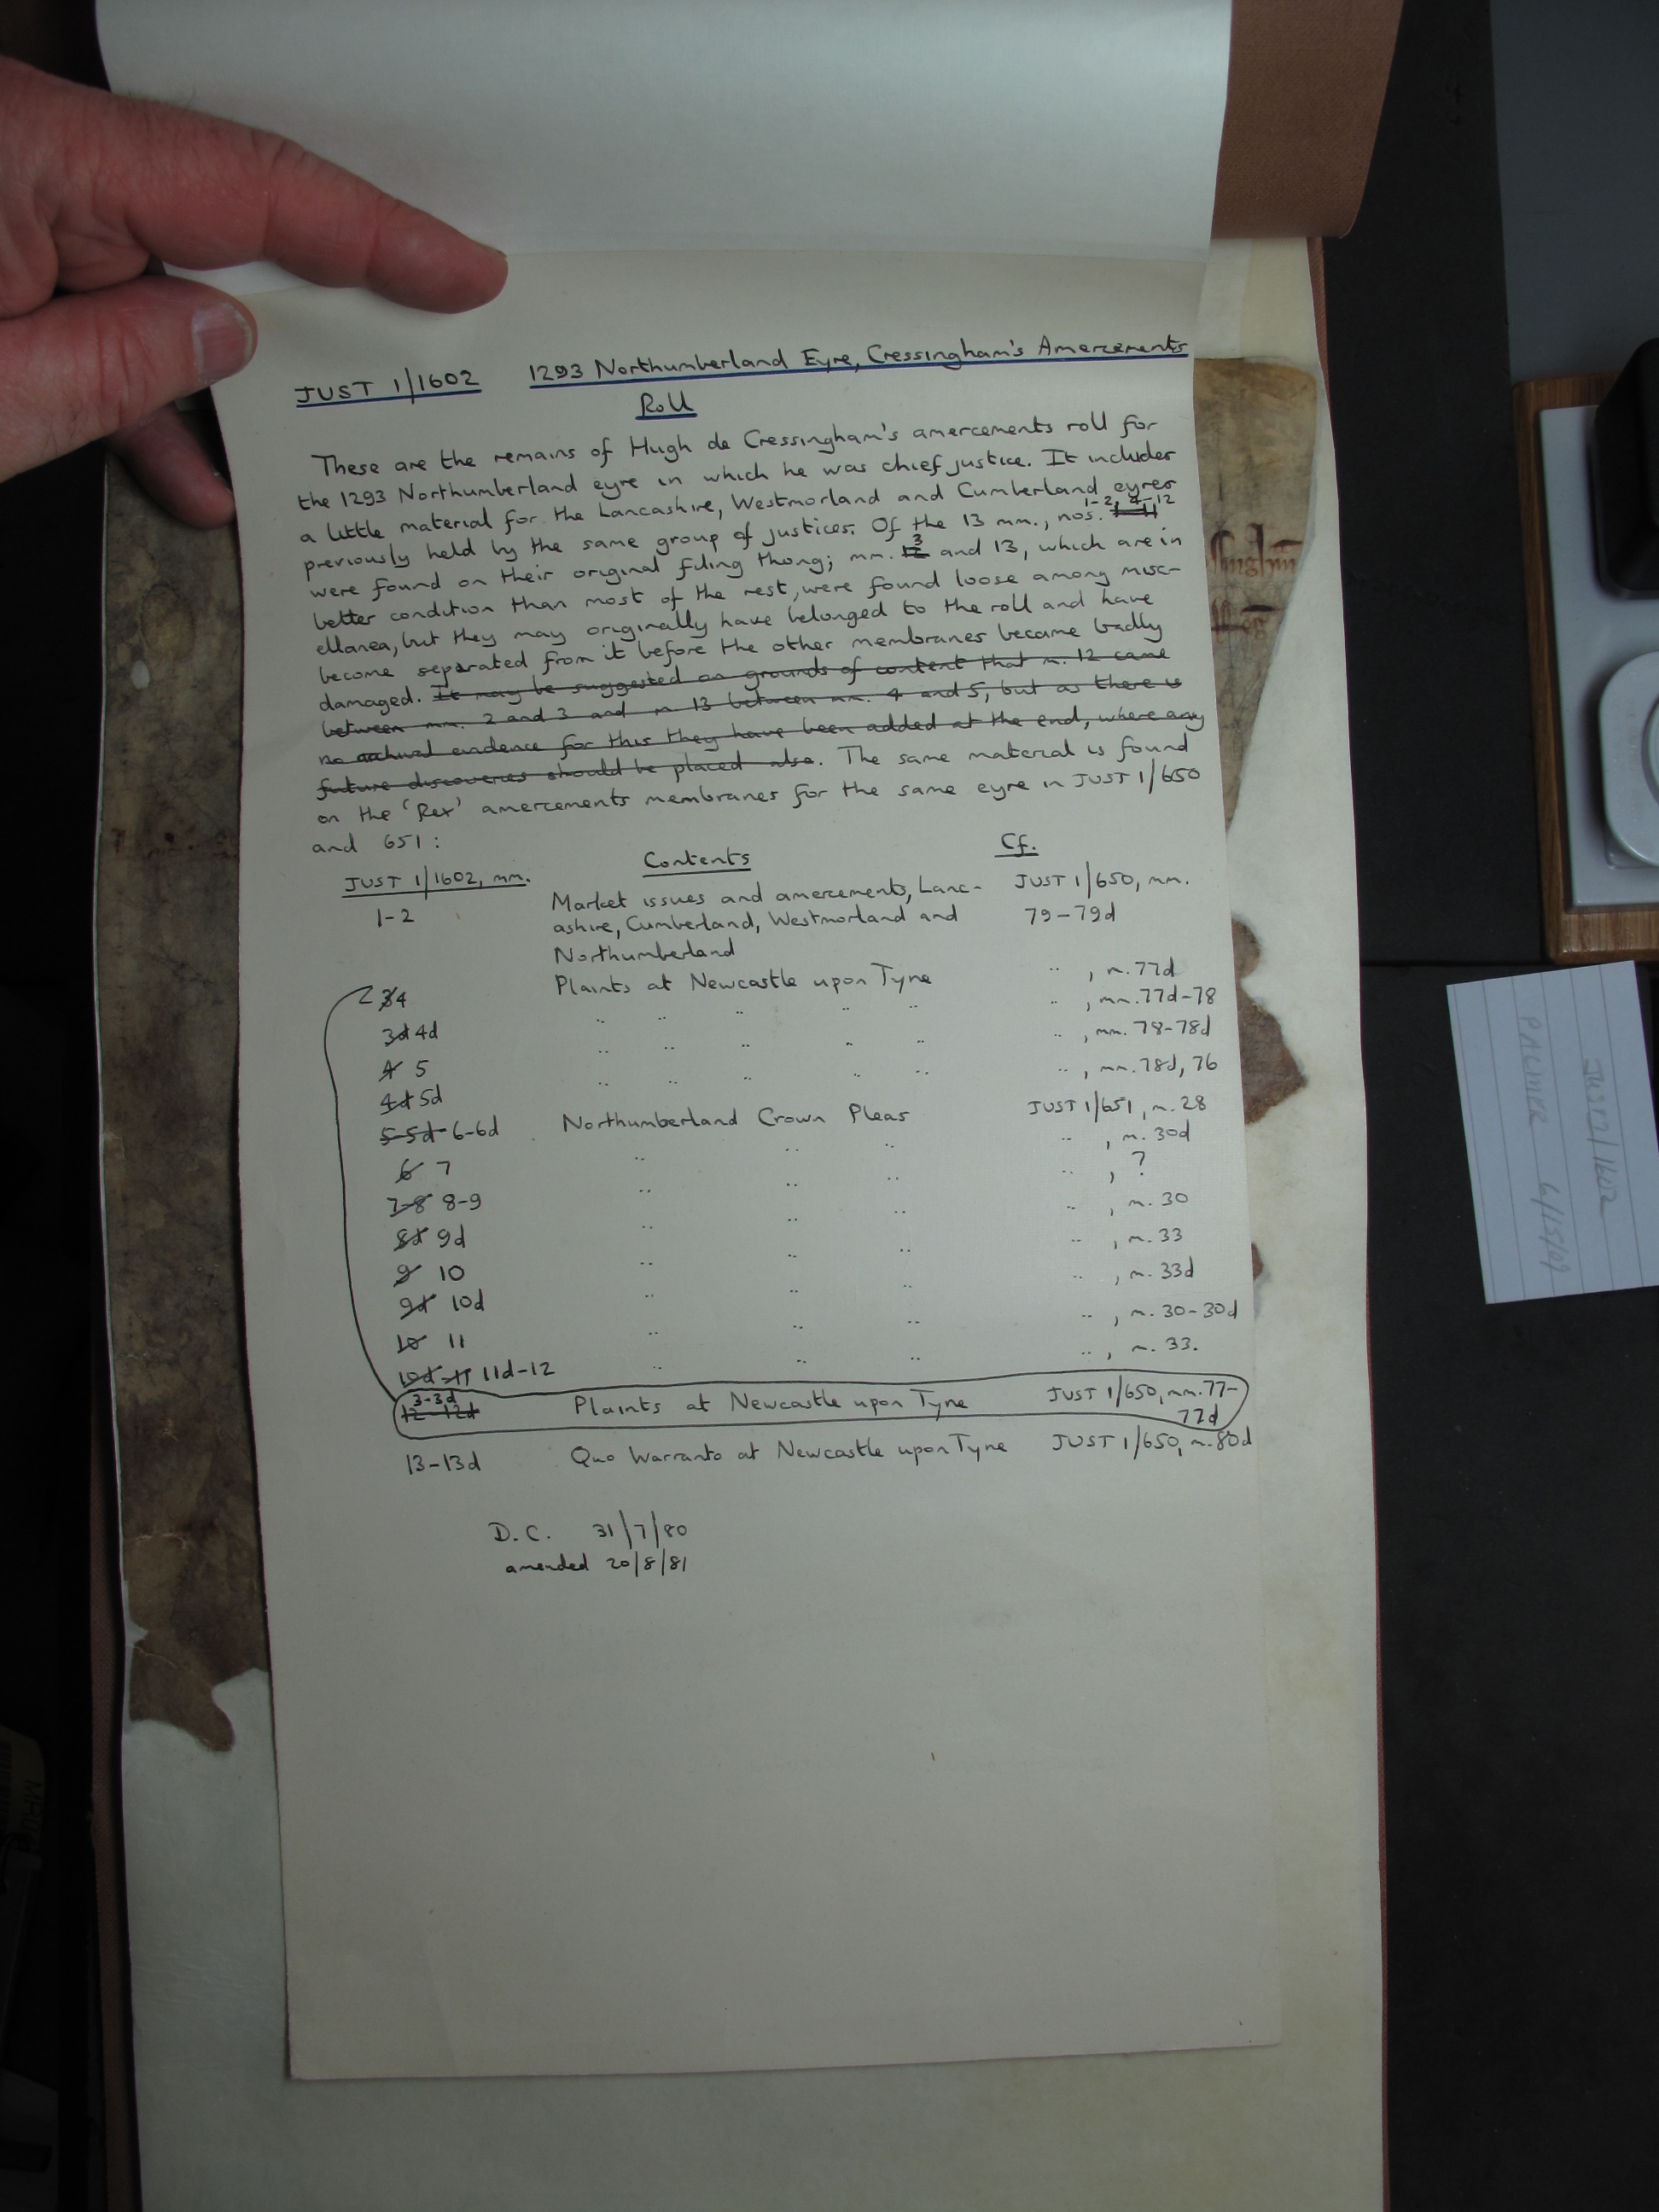 JUST 1/1602 1293 Northumberland Eyre, Cressingham's Amercements
Roll
These are the remains of Hugh de Cressingham's amercements roll for
the 1293 Northumberland eyre in which he was chief justice. It includes
a little material for the Lancashire, Westmorland and Cumberland eyres
previously held by the same group of justices. Of the 13 mm., nos. 1-2, 4-12
were found on their original filing thong; mm. 12 3 and 13, which are in
better condition than most of the rest, were found loose among misc-
ellanea, but they may originally have belonged to the roll and have
become separated from it before the other membranes became badly
damaged. It may be suggested on grounds of content that m. 12 came
between mm. 2 and 3 and m. 13 between mm. 4 and 5, but as there is
no actual evidence for this they have been added at the end, where any
future discoveries should be placed also. The same material is found
on the 'Rex' amercements membranes for the same eyre in JUST 1/650
and 651:
JUST 1/1602, mm. Contents Cf.
1-2 Market issues and amercements, Lanc- JUST 1/650, mm.
ashire, Cumberland, Westmorland and 79-79d
Northumberland
3 4 Plaints at Newcastle upon Tyne .. , m. 77d
3d 4d .. .. .. .. .. .. , mm. 77d-78
4 5 .. .. .. .. .. .. , mm. 78-78d
4d 5d .. .. .. .. .. .. , mm. 78d, 76
5-5d 6-6d Northumberland Crown Pleas JUST 1/651, m. 28
6 7 .. .. .. .. , m. 30d
7-8 8-9 .. .. .. .. , ?
8d 9d .. .. .. .. , m. 30
9 10 .. .. .. .. , m. 33
9d 10d .. .. .. .. , m. 33d
10 11 .. .. .. .. , m. 30-30d
10d-11 11d-12 .. .. .. .. , m. 33.
3-3d
12-12d Plaints at Newcastle upon Tyne JUST 1/650, mm. 77-
77d
13-13d Quo Warranto at Newcastle upon Tyne JUST 1/650, m. 80d
D.C. 31/7/80
amended 20/8/81
JUST 1/1602
PALMER 6/15/09